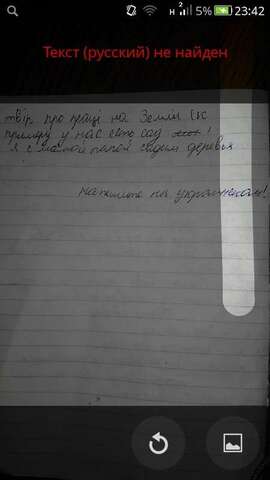 н 2 5% 23:42
Текст (русский) не найден
твір про праці на Землі
примеру у нас есть сад !
я с мамой папой садим деревья
напишите на украинском!